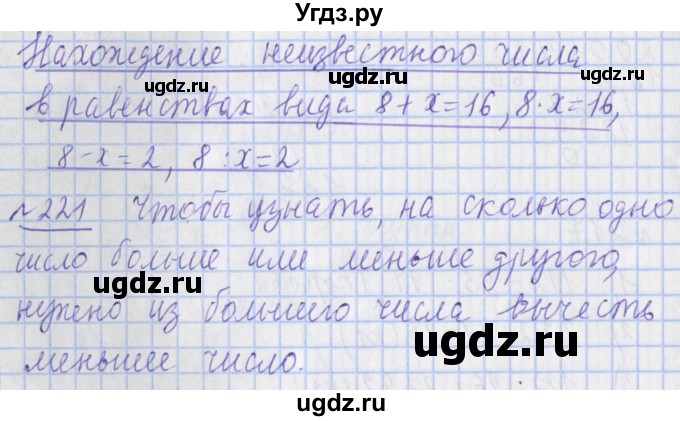 Угдз.ру
Нахождение неизвестного числа
ugdz.ru ugdz.ru
в равенствах вида 8 + x = 16, 8 · x = 16,
8 - x = 2, 8 : x = 2
ugdz.ru ugdz.ru
№221 Чтобы узнать, на сколько одно
число больше или меньше другого,
ugdz.ru ugdz.ru
нужно из большего числа вычесть
ugdz.ru
меньшее число.
ugdz.ru